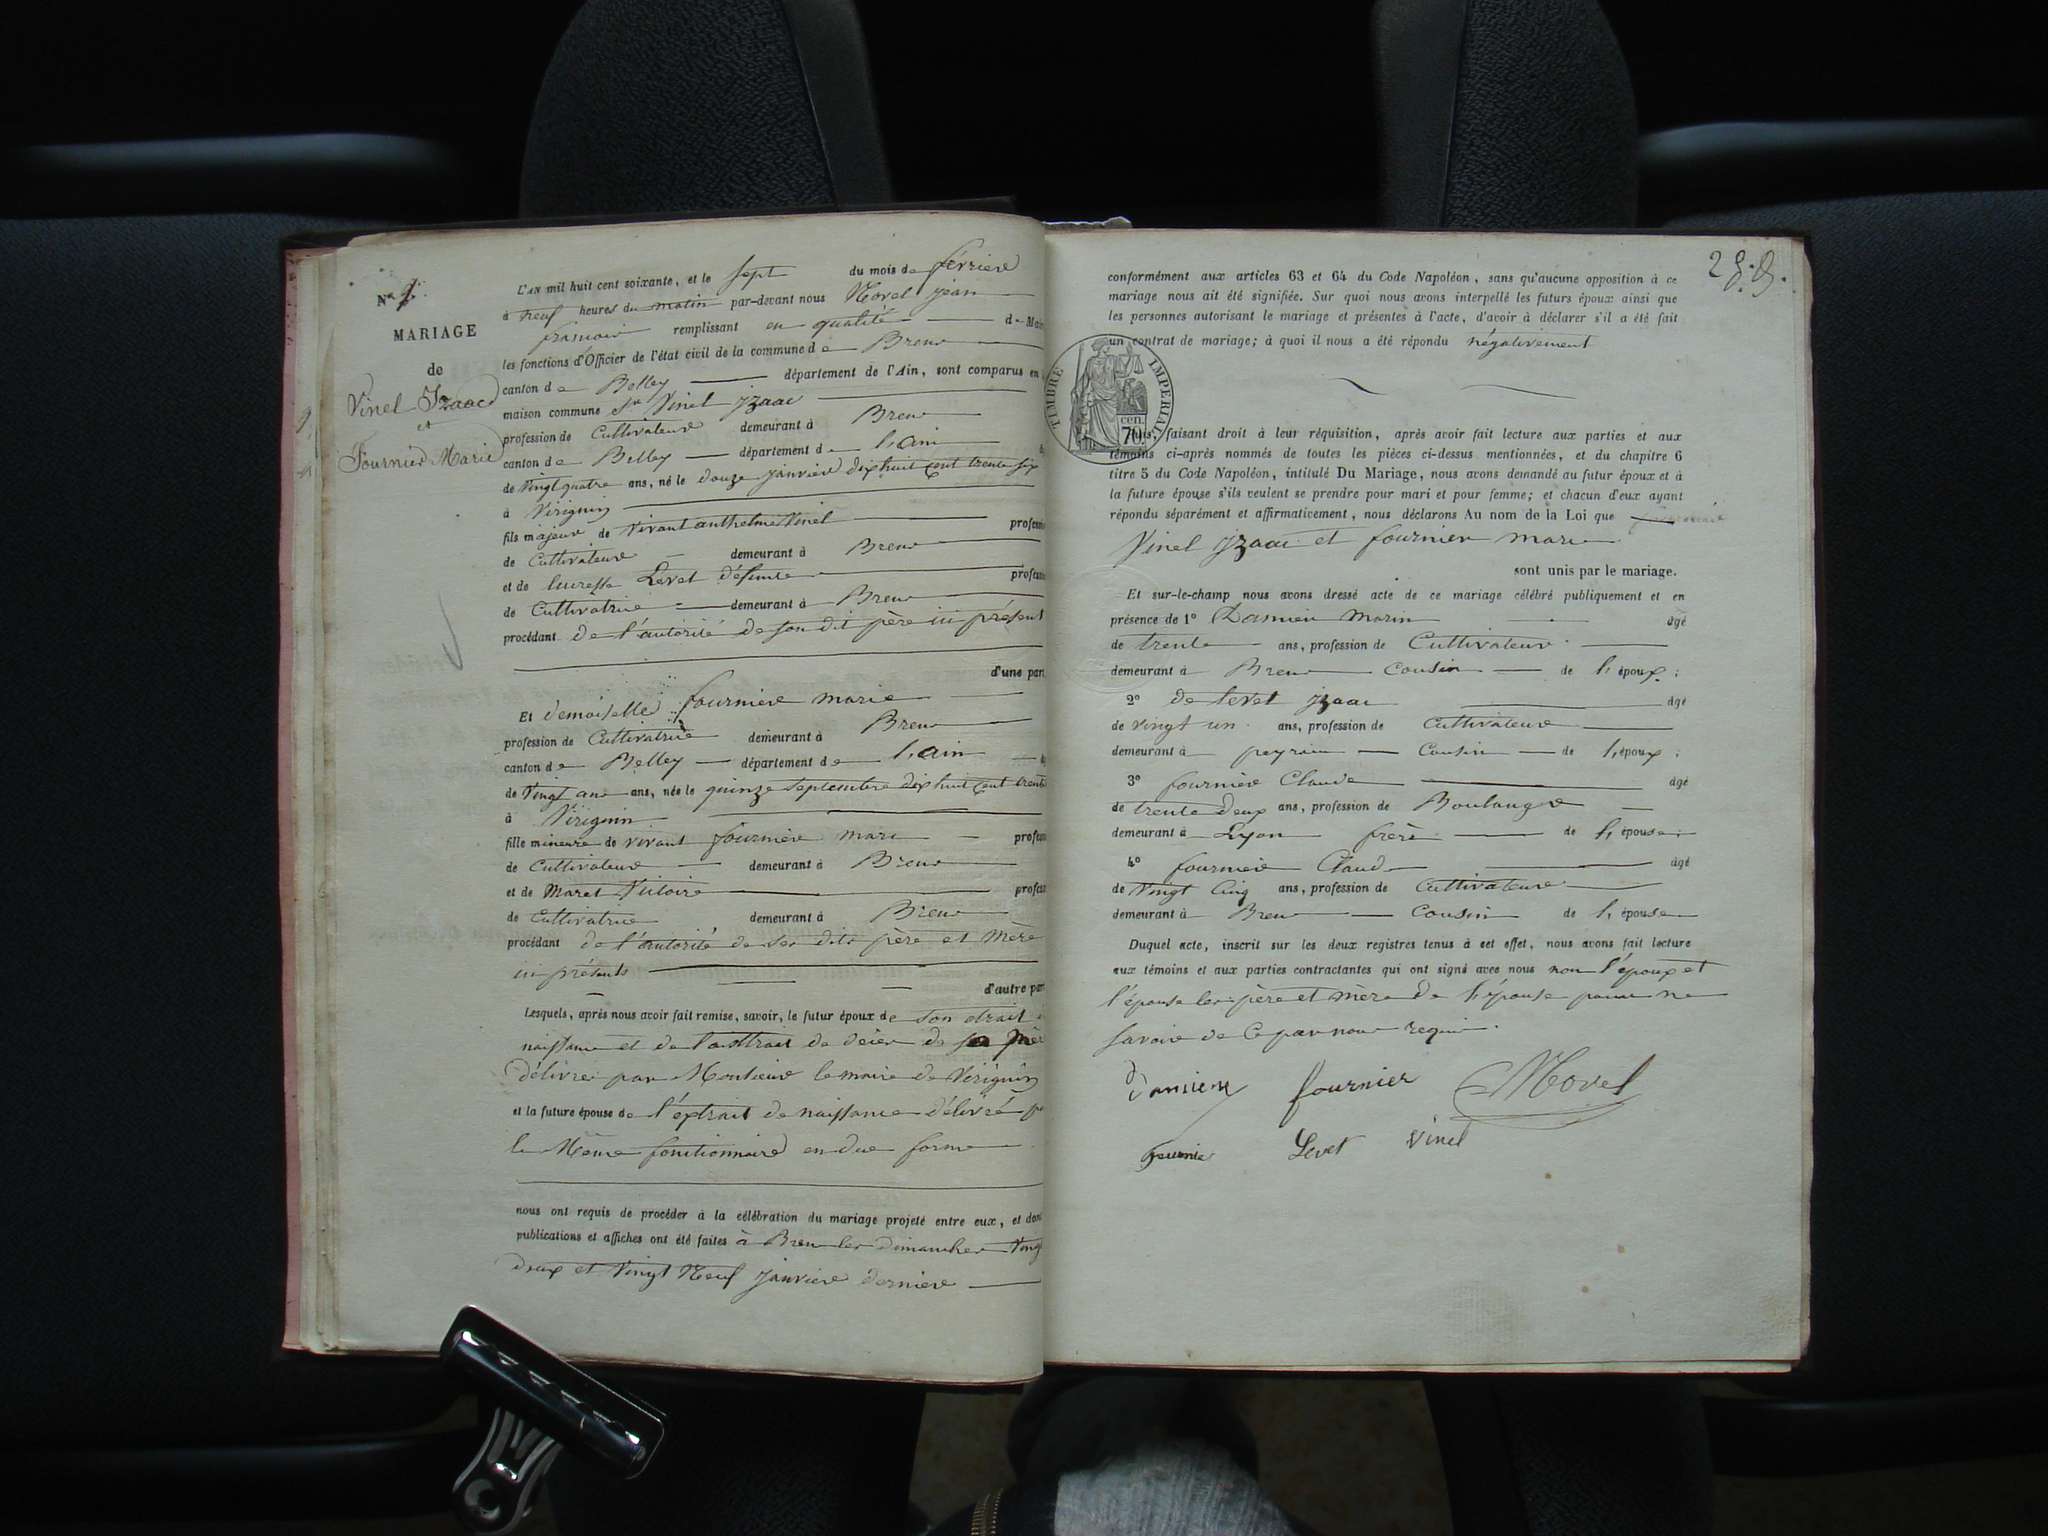 N° 1
MARIAGE
de
Vinel Izaac
et
Fournier Marie
L'AN mil huit cent soixante, et le sept du mois de févriere
à neuf heures du matin par-devant nous Morel jean
francois remplissant en qualité de Mair
les fonctions d'Officier de l'état civil de la commune de Brens
canton de Belley département de l'Ain, sont comparus en
maison commune sr Vinel jzaac
profession de Cultivateur demeurant à Brens
canton de Belley département de l'ain
de vingt quatre ans, né le douze janvier dix huit cent trente six
à Virignin
fils majeur de vivant anthelme Vinel professi
de Cultivateur demeurant à Brens
et de lucresse Levet défunte professi
de Cultivatrice demeurant à Brens
procédant de l'autorité de son dit père ici présent
d'une part
Et demoiselle fourniere marie
profession de Cultivatrice demeurant à Brens
canton de Belley département de l'ain
de vingt ans ans, née le quinze septembre dix huit cent trente
à Virignin
fille mineure de vivant fournière marc professi
de Cultivateur demeurant à Brens
et de Maret Victoire professi
de Cultivatrice demeurant à Brens
procédant de l'autorité de ses dits père et mère
ici présents
d'autre part
Lesquels, après nous avoir fait remise, savoir, le futur époux de son etrait
naissance et de l'asttrait de décès de sa mère
délivrés par Monsieur le maire de Virignin
et la future épouse de l'extrait de naissance délivré
le Même fonctionnaire en due forme
nous ont requis de procéder à la célébration du mariage projeté entre eux, et dont
publications et affiches ont été faites à Brens les dimanches vingt
deux et vingt Neuf janvier derniere
28.
conformément aux articles 63 et 64 du Code Napoléon, sans qu'aucune opposition à ce
mariage nous ait été signifiée. Sur quoi nous avons interpellé les futurs époux ainsi que
les personnes autorisant le mariage et présentes à l'acte, d'avoir à déclarer s'il a été fait
un contrat de mariage; à quoi il nous a été répondu négativement
TIMBRE IMPERIAL
70 cen.
faisant droit à leur réquisition, après avoir fait lecture aux parties et aux
témoins ci-après nommés de toutes les pièces ci-dessus mentionnées, et du chapitre 6
titre 5 du Code Napoléon, intitulé Du Mariage, nous avons demandé au futur époux et à
la future épouse s'ils veulent se prendre pour mari et pour femme; et chacun d'eux ayant
répondu séparément et affirmativement, nous déclarons Au nom de la Loi que
Vinel jzaac et fournier marie
sont unis par le mariage.
Et sur-le-champ nous avons dressé acte de ce mariage célébré publiquement et en
présence de 1° Damien marin âgé
de trente ans, profession de Cultivateur
demeurant à Brens Cousin de l'époux;
2° de levet jzaac âgé
de vingt un ans, profession de Cultivateur
demeurant à peyrieu Cousin de l'époux;
3° fournière Claude âgé
de trente deux ans, profession de Boulanger
demeurant à Lyon frère de l'épouse;
4° fourniere Claude âgé
de vingt cinq ans, profession de Cultivateur
demeurant à Brens Cousin de l'épouse
Duquel acte, inscrit sur les deux registres tenus à cet effet, nous avons fait lecture
aux témoins et aux parties contractantes qui ont signé avec nous non l'époux et
l'épouse les père et mère de l'épouse pour ne
savoir de ce par nous requis.
damien fournier Morel
fournier Levet vinel